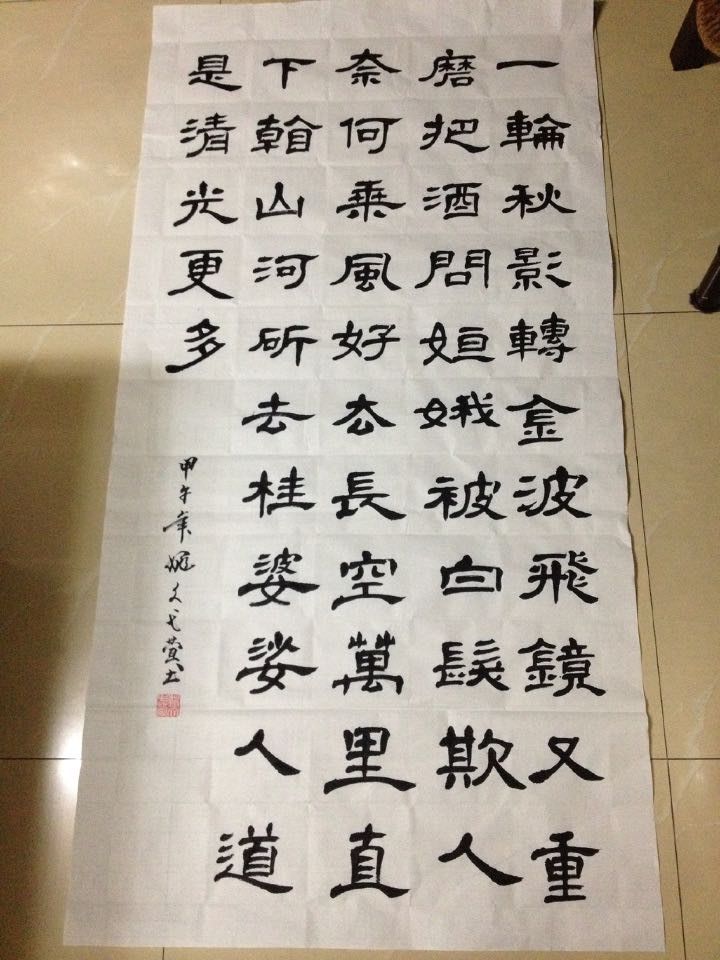 一輪秋影轉金波飛鏡又重
磨把酒問姮娥被白髮欺人
奈何乘風好厺長空萬里直
下看山河斫去桂婆娑人道
是清光更多
甲午年姚